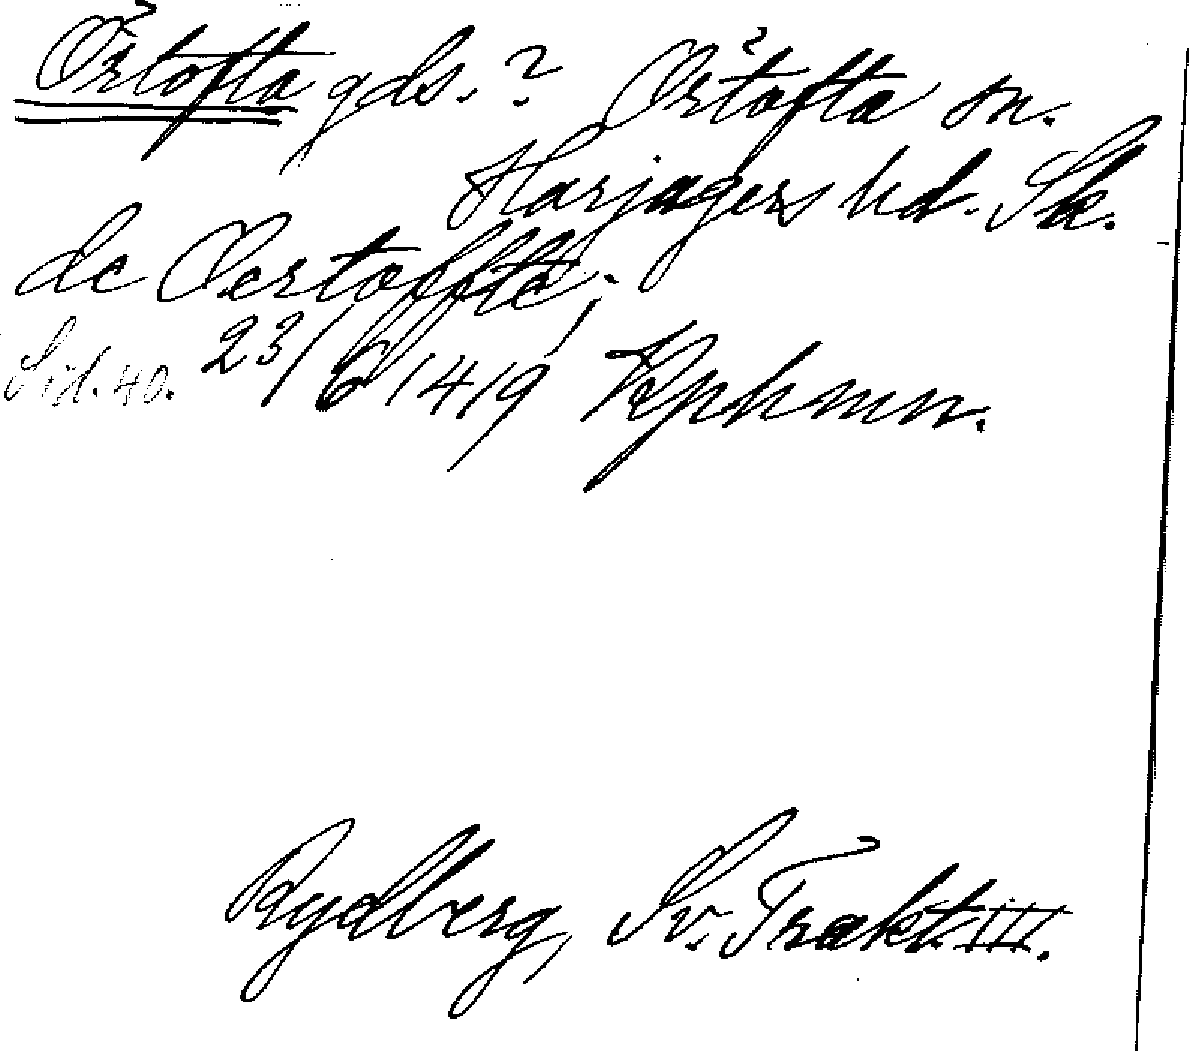 Örtofta gds.? Örtofta sn.
Harjagers hd. Sk.
de Oertoffte;
Sid. 40. 23/6 1419, Kphmn.
Rydberg, Sv. Trakt. III.